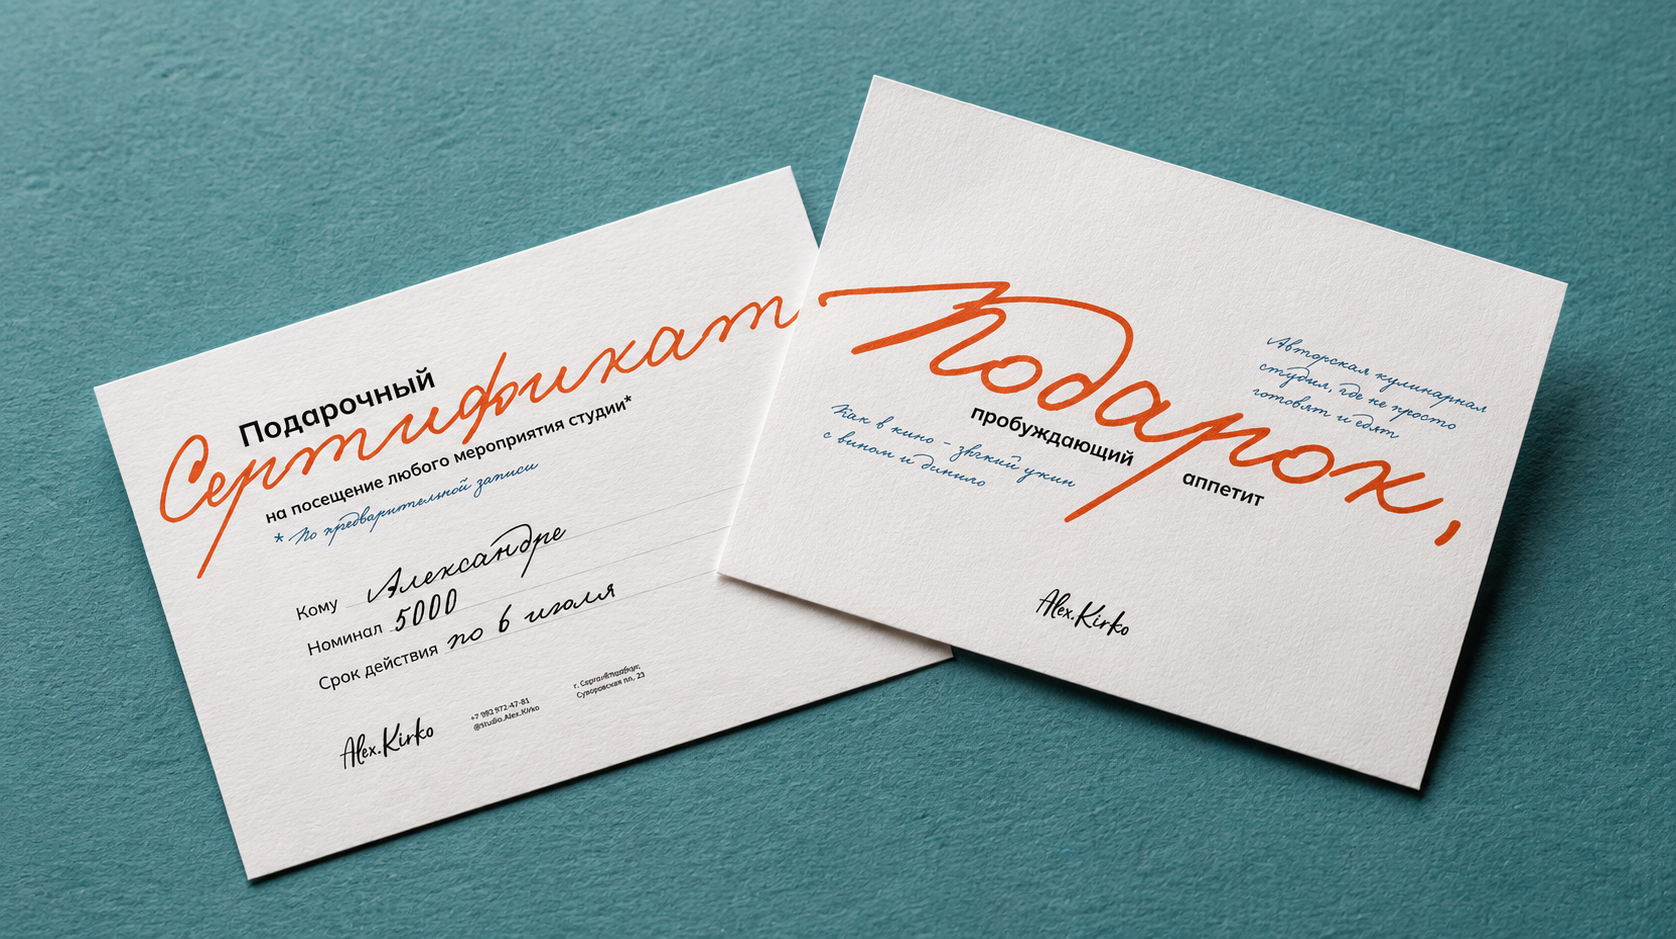 Подарочный
Сертификат
на посещение любого мероприятия студии*
* По предварительной записи
Кому Александре
Номинал 5000
Срок действия по 6 июля
Alex.Kirko
+7 992 972-47-81
@Studio.Alex.Kirko
г.
Суворовская пл, 23
Подарок,
пробуждающий
аппетит
Авторская кулинарная
студия, где не просто
готовят и едят
Как в кино – ужин
с вином и
Alex.Kirko